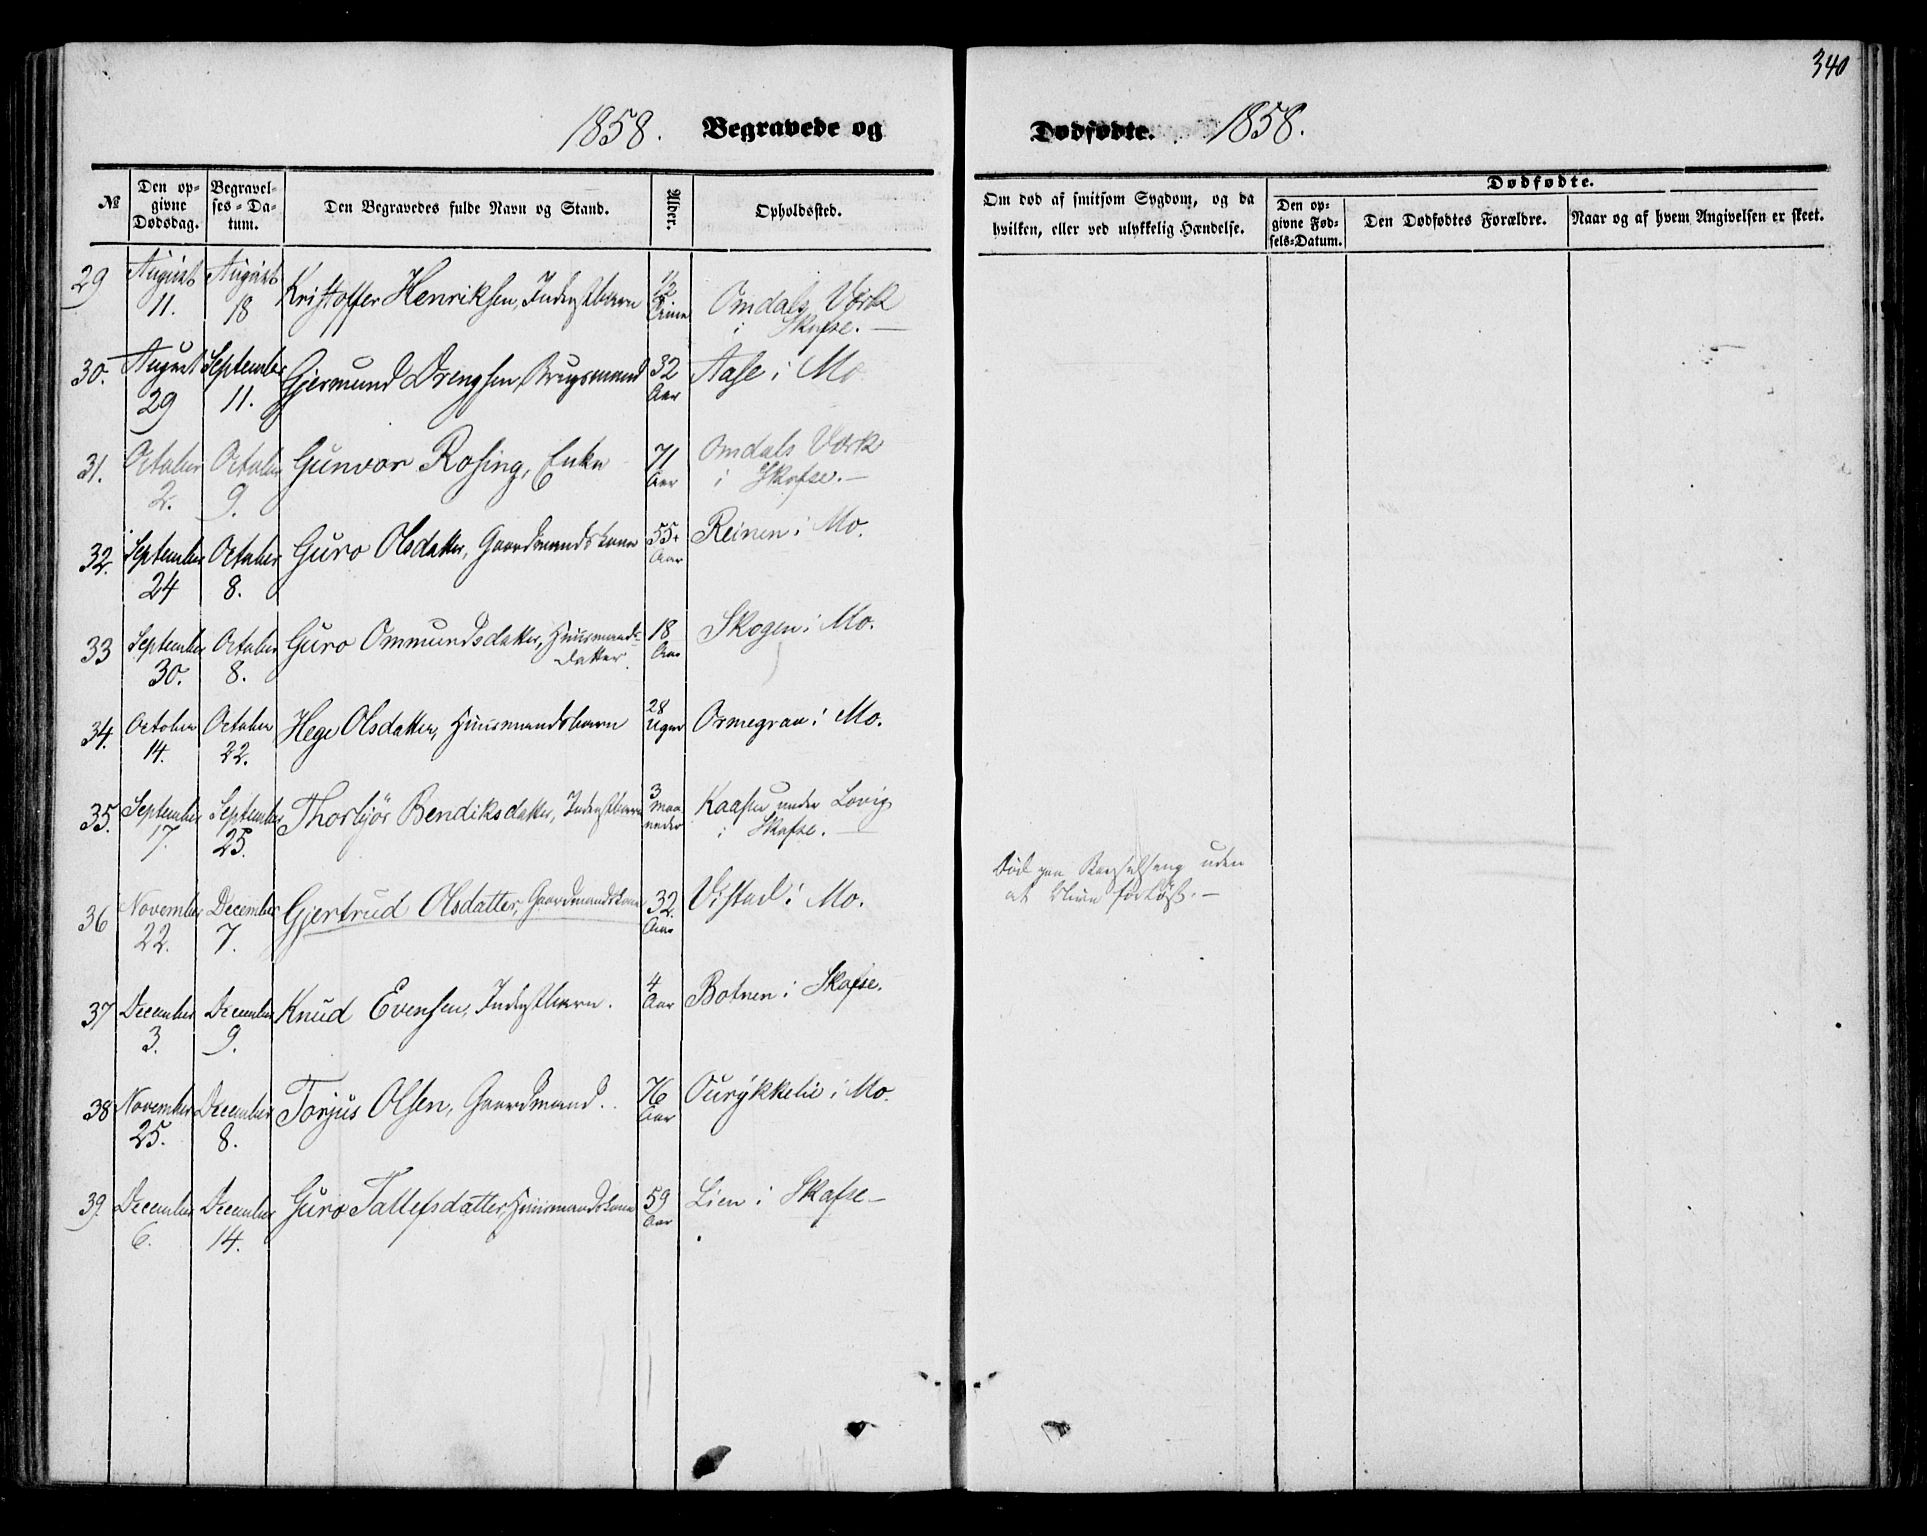 340
1858. Begravede og Dødfødte. 1858.
№ Den opgivne Dødsdag. Begravelses-Datum. Den Begravedes fulde Navn og Stand. Alder. Opholdssted. Om død af smitsom Sygdom, og da hvilken, eller ved ulykkelig Hændelse.
Dødfødte.
Den opgivne Fødsels-Datum. Den Dødfødtes Forældre. Naar og af hvem Angivelsen er skeet.
29 August 11. August 18 Kristoffer Henriksen, Inderstbarn 1/2 Omdals Værk
i Skafse.—
30. August 29 September 11. Gjermund Drengsen, Brugsmand 32 Aar Aase i Mo
31. October 2. October 9. Gunvor Rosing, Enke 71 Aar Omdals Værk
i Skafse.—
32. September 24 October 8. Guro Olsdatter, Gaardmandskone 55 Aar Reinen i Mo.
33 September 30. October 8. Guro Ommundsdatter, Huusmands- 18 Aar Skogen i Mo.
datter.
34. October 14. October 22. Hege Olsdatter, Huusmandsbarn 28 Uger Ormegrav i Mo.
35. September 17. September 25. Thorbjør Bendiksdatter, Inderstbarn 3 Maaneder Kaasen under Lovig
i Skafse.—
36 November 22. December 7. Gjertrud Olsdatter, Gaardmandskone 32. Aar Vistad i Mo. Død paa Barselseng uden
at blive forløst.—
37 December 3. December 9. Knud Evensen, Inderstbarn. 4 Aar Botnen i Skafse.
38 November 25. December 8. Torjus Olsen, Gaardmand. 76 Aar Ourykkelie i Mo.
39. December 6. December 14. Guro Tallefsdatter, Huusmandskone 59 Aar Lien i Skafse—